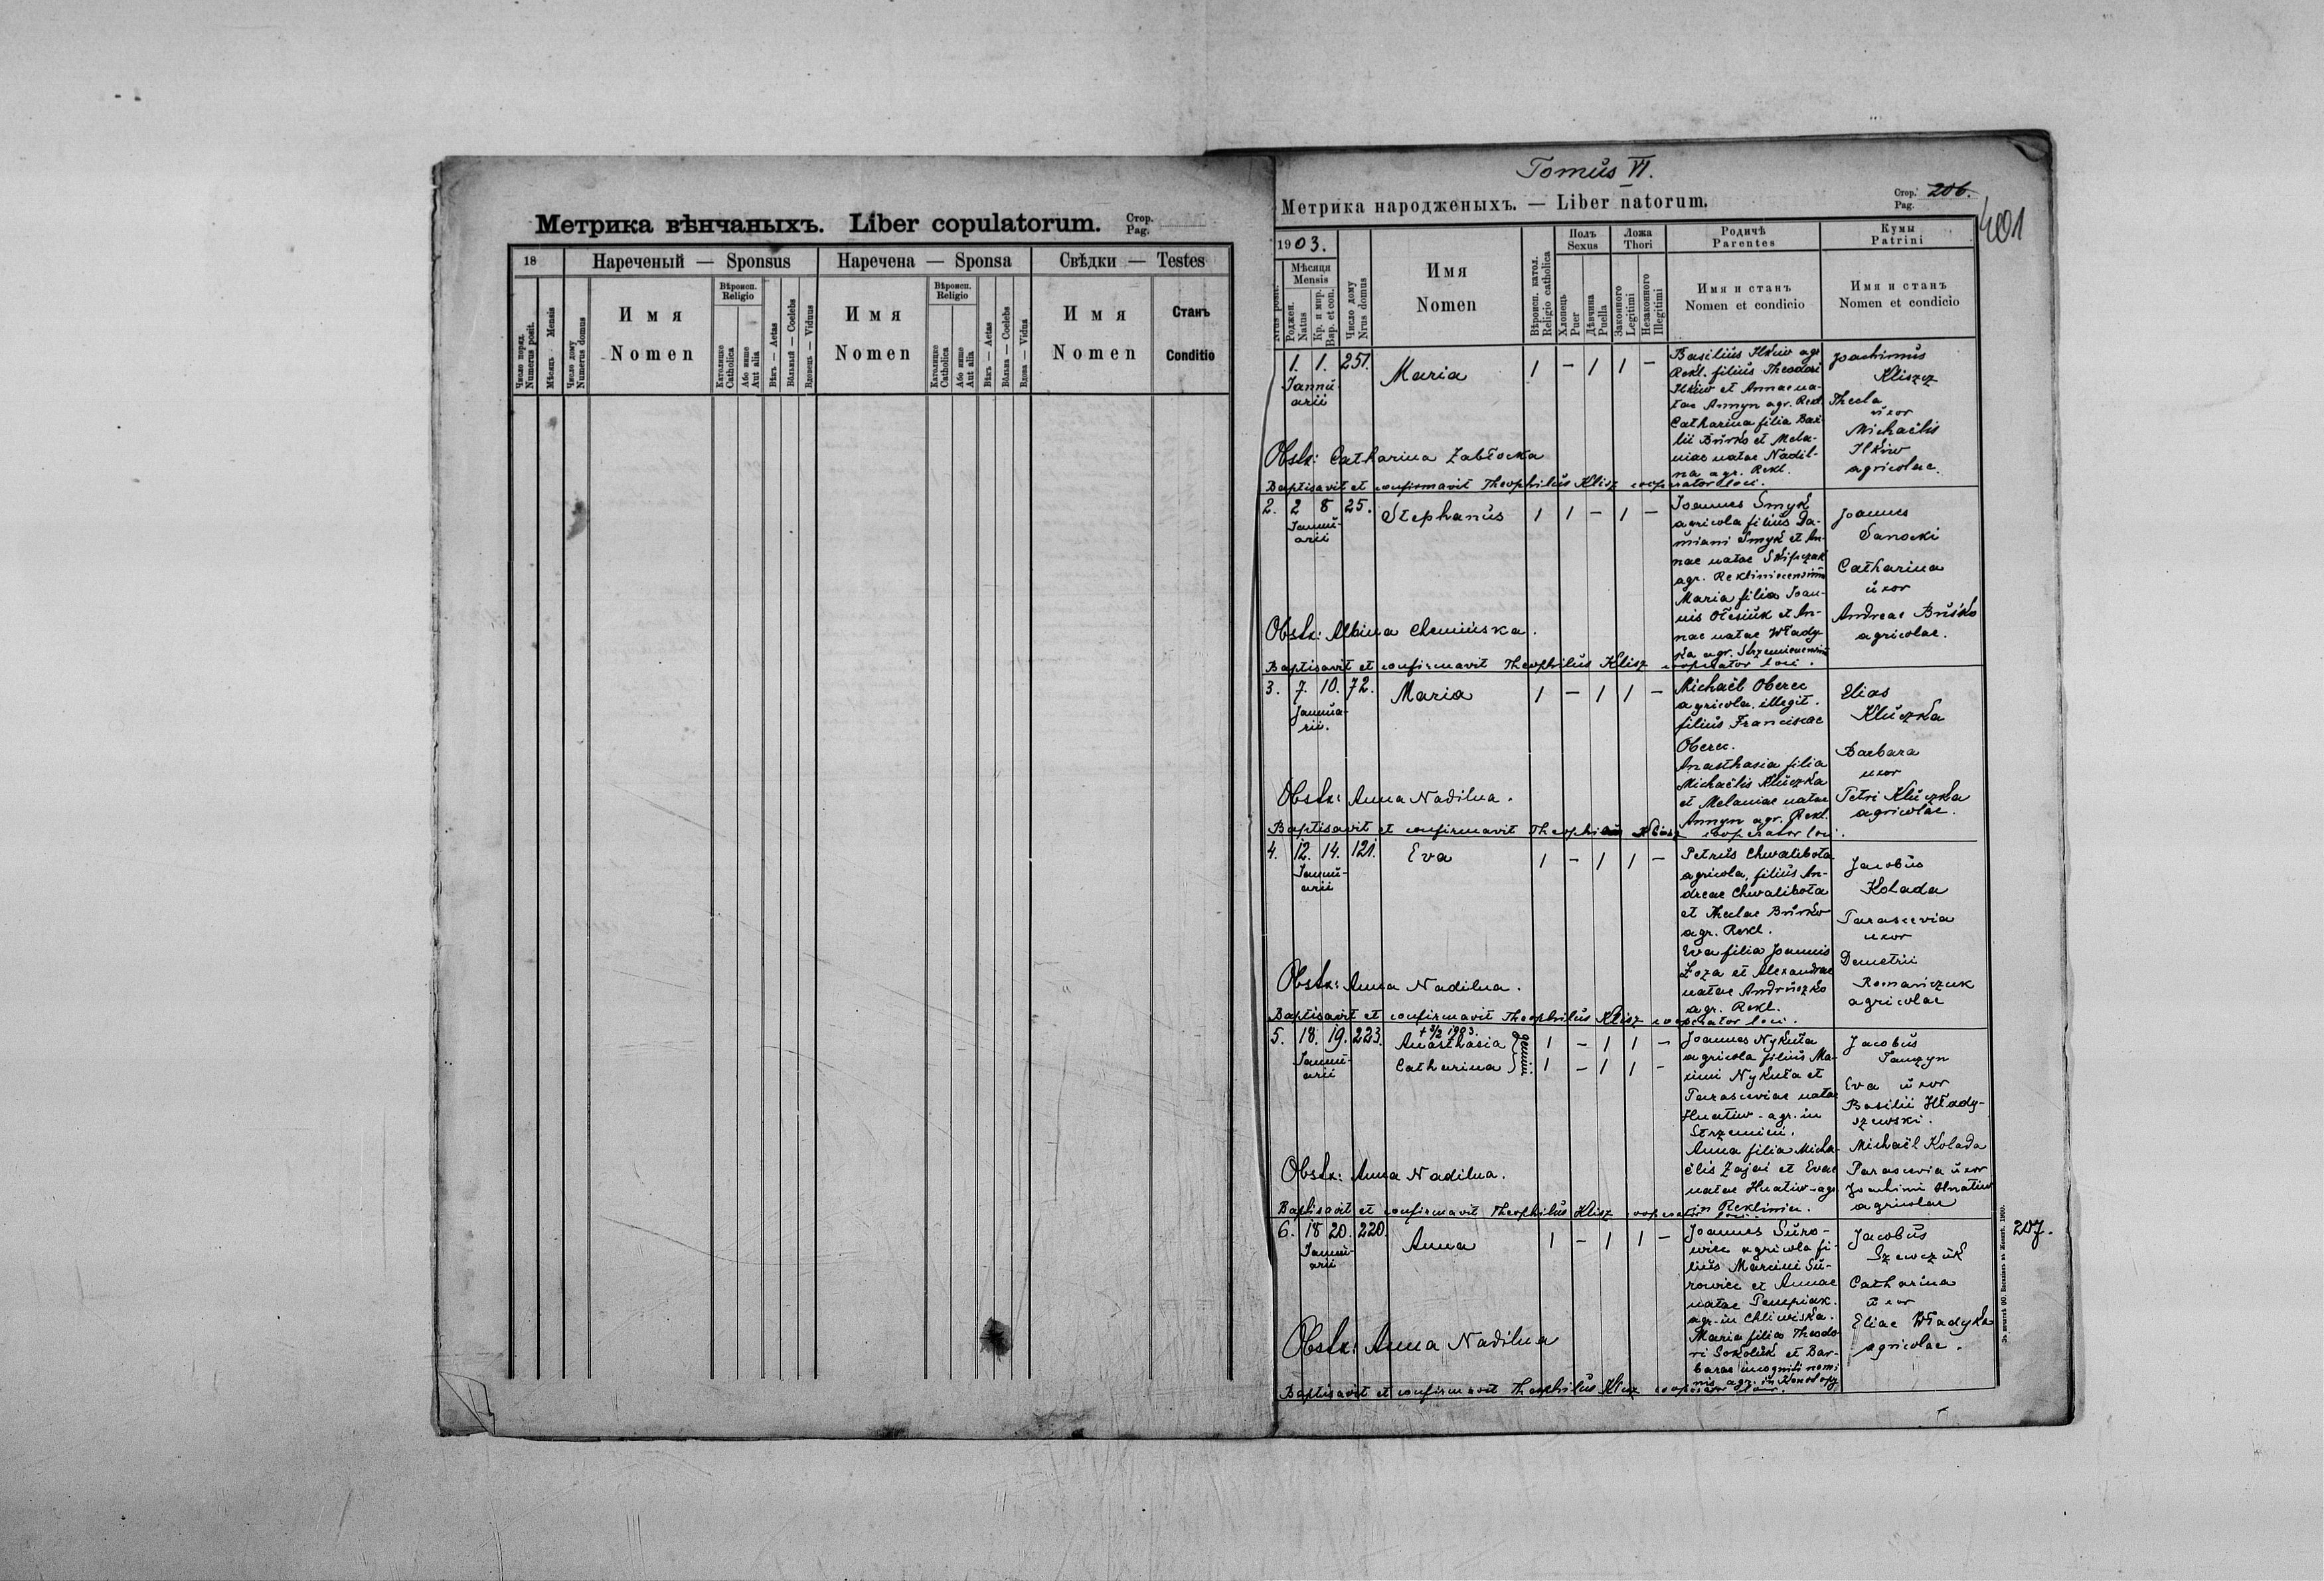 Метрика вѣнчаныхъ. Liber copulatorum. Стор. Pag.
18
Нареченый — Sponsus
Наречена — Sponsa
Свѣдки — Testes
Число поряд. Numerus posit.
Мѣсяць Mensis
Число дому Numerus domus
Имя
Nomen
Вѣроисп. Religio
Католицке Catholica
Або инше Aut alia
Вѣкъ — Aetas
Вôльный — Coelebs
Вдовець — Viduus
Имя
Nomen
Вѣроисп. Religio
Католицке Catholica
Або инше Aut alia
Вѣкъ — Aetas
Вôльна — Coelebs
Вдова — Vidua
Имя
Nomen
Станъ
Conditio
Tomus VI.
Метрика народженыхъ. — Liber natorum.
Стор. Pag. 206.
401
1903.
Nrus posit.
Мѣсяця Mensis
Роджен. Natus
Кр. и мир. Bap. et con.
Число дому Nrus domus
Имя
Nomen
Вѣроисп. катол. Religio catholica
Полъ Sexus
Хлопець Puer
Дѣвчина Puella
Ложа Thori
Законного Legitimi
Незаконного Illegitimi
Родичѣ Parentes
Имя и станъ
Nomen et condicio
Кумы Patrini
Имя и станъ
Nomen et condicio
1. 1. 251. Maria 1 – 1 1 –
Januarii
Basilius Ilkiw agr.
Rekl. filius Theodori
Ilkiw et Annae na-
tae Annyn agr. Rekl.
Catharina filia Basi-
lii Burko et Mela-
niae natae Nadil-
na agr. Rekl.
Joachimus
Kliszcz
Thecla
uxor
Michaëlis
Ilkiw
agricolae.
Obstx: Catharina Zabłocka
Baptisavit et confirmavit Theophilus Klisz cooperator loci.
2. 2 8 25. Stephanus 1 1 – 1 –
Januarii
Joannes Smyk
agricola filius Da-
miani Smyk et An-
nae natae
agr. Rekliniecensium
Maria filia Joan-
nis Olesiuk et An-
nae natae Włady-
ka agr.
Joannes
Sanocki
Catharina
uxor
Andreae Buśko
agricolae.
Obstx: Albina
Baptisavit et confirmavit Theophilus Klisz cooperator loci.
3. 7. 10. 72. Maria 1 – 1 1 –
Januarii.
Michaël Oberec
agricola, illegit.
filius Franciscae
Oberec.
Anasthasia filia
Michaëlis Kluczka
et Melaniae natae
Annyn agr. Rekl.
Elias
Kluczka
Barbara
uxor
Petri Kluczka
agricolae.
Obstx: Anna Nadilna.
Baptisavit et confirmavit Theophilus Klisz cooperator loci.
4. 12. 14. 121. Eva 1 – 1 1 –
Januarii
Petrus Chwalibota
agricola, filius An-
dreae Chwalibota
et Theclae Burko
agr. Rekl.
Eva filia Joannis
Łoza et Alexandrae
natae Andruszko
agr. Rekl.
Jacobus
Kolada
Parascevia
uxor
Demetrii
Romańczuk
agricolae
Obstx: Anna Nadilna.
Baptisavit et confirmavit Theophilus Klisz cooperator loci.
5. 18. 19. 223. Anasthasia
Catharina gemini
1 – 1 1 –
1 – 1 1 –
Januarii
Joannes Nykuta
agricola filius Ma-
ximi Nykuta et
Parasceviae natae
Hnatiw – agr. in
Strzemień.
Anna filia Micha-
ëlis Zajac et Evae
natae Hnatiw – agr.
in Rekliniec.
Jacobus
Eva uxor
Basilii Hłady-
szewski.
Michaël Kolada
Parascevia uxor
Joachimi Hnatiw
agricolae
Obstx: Anna Nadilna.
Baptisavit et confirmavit Theophilus Klisz cooperator loci.
6. 18 20. 220. Anna 1 – 1 1 –
Januarii
Joannes Suro-
wiec agricola fi-
lius Marcini Su-
rowiec et Annae
natae Pempiak.
agr. in Chliwiska.
Maria filia Theodo-
ri Sokoluk et Bar-
barae incogniti nomi-
nis agr. in Konotopy
Jacobus
Szewczuk
Catharina
uxor
Eliae Władyka
agricolae.
Obstx: Anna Nadilna
Baptisavit et confirmavit Theophilus Klisz cooperator loci.
207.